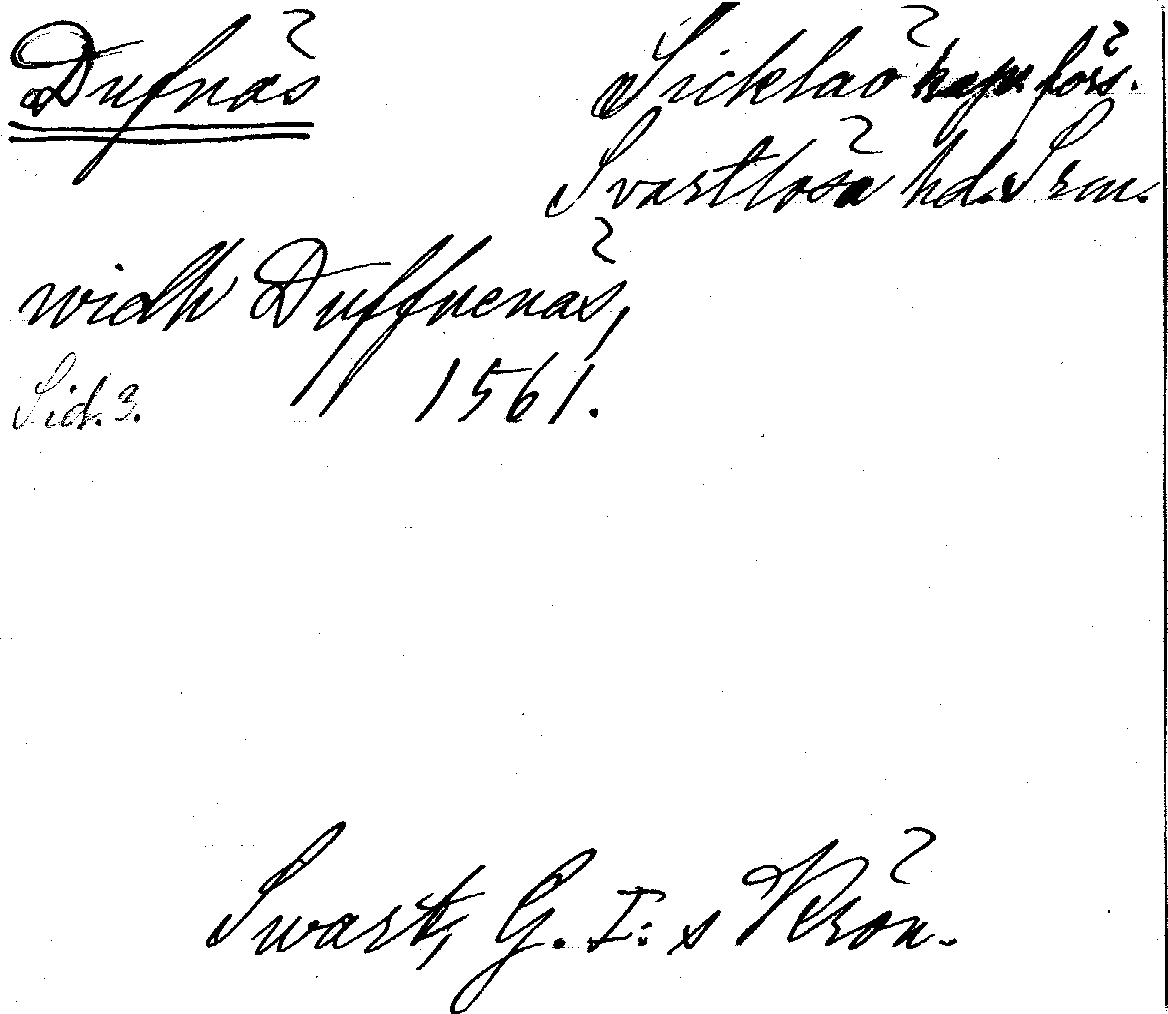 Dufnäs
Sicklaö kapu förs.
Svartlösa hd. Srm.
widh Duffnenäs,
Sid. 3. 1561.
Swart, G. I:s Krön.